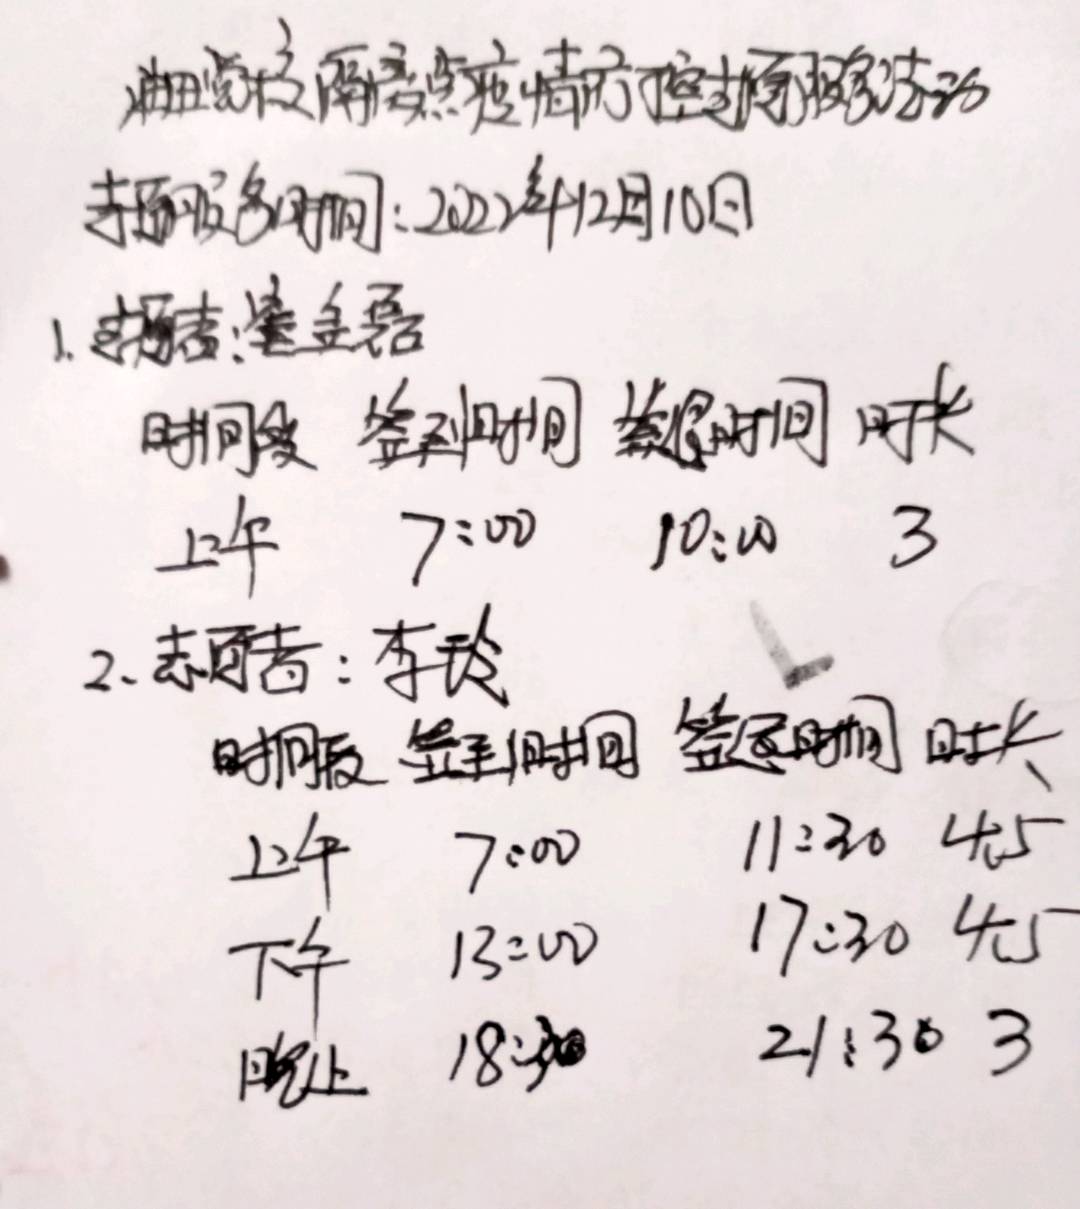 隔离点疫情防控志愿服务活动
志愿服务时间:2022年12月10日
1.志愿者:金磊
时间段 签到时间 签退时间 时长
上午 7:00 10:00 3
2.志愿者:李玲
时间段 签到时间 签退时间 时长
上午 7:00 11:30 4.5
下午 13:00 17:30 4.5
晚上 18:30 21:30 3